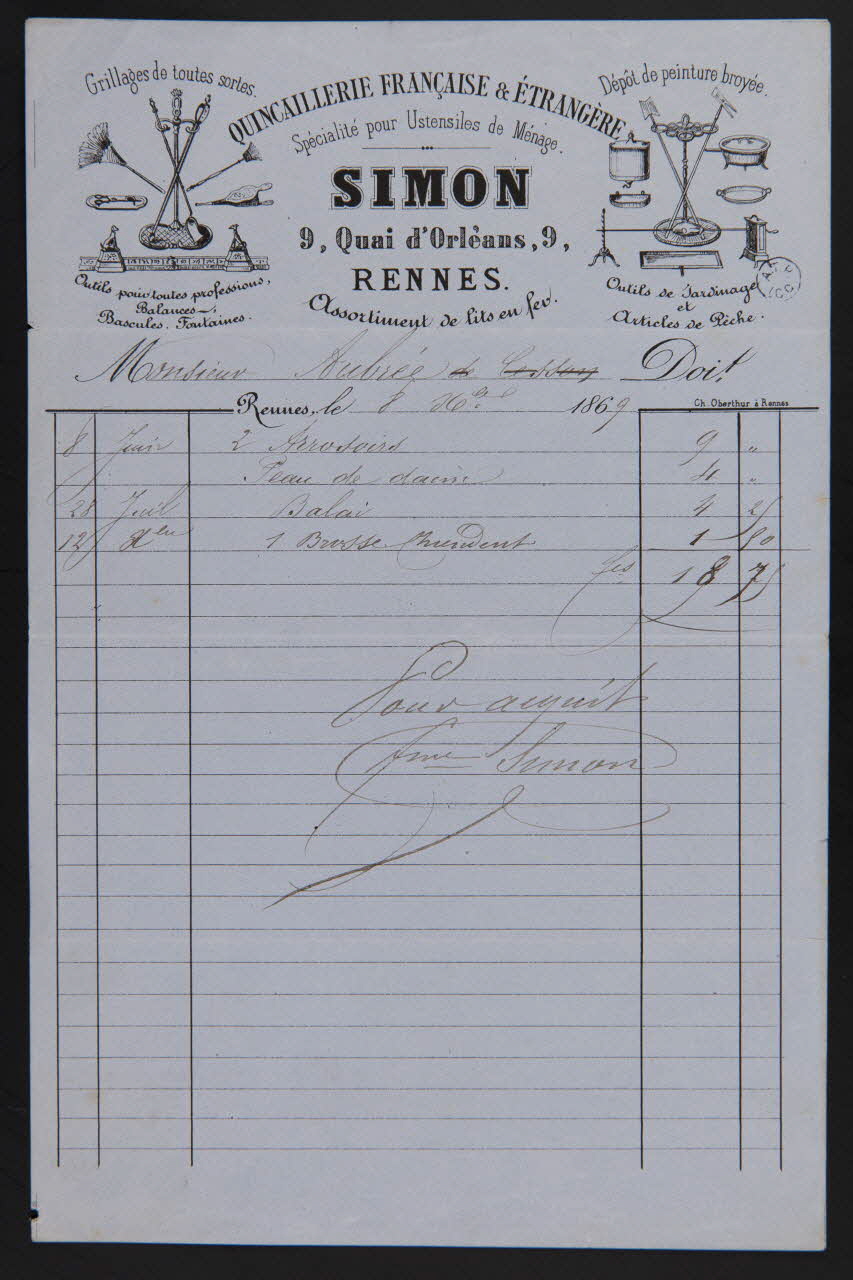 Grillages de toutes sortes.
QUINCAILLERIE FRANÇAISE & ÉTRANGÈRE
Dépôt de peinture broyée.
Spécialité pour Ustensiles de Ménage.
SIMON
9, Quai d'Orléans, 9,
RENNES.
Assortiment de lits en fer.
Outils pour toutes professions,
Balances,
Bascules, Fontaines.
Outils de Jardinage
et
Articles de Pêche.
Monsieur Aubrée de Cesson Doit
Rennes, le 8 1869
Ch. Oberthur à Rennes
8 Juin 2 Arrosoirs 9 "
Peau de daim 4 "
28 Juil Balai 4 25
12 1 Brosse Chiendent 1 50
fcs 18 75
Pour acquit
Fme Simon